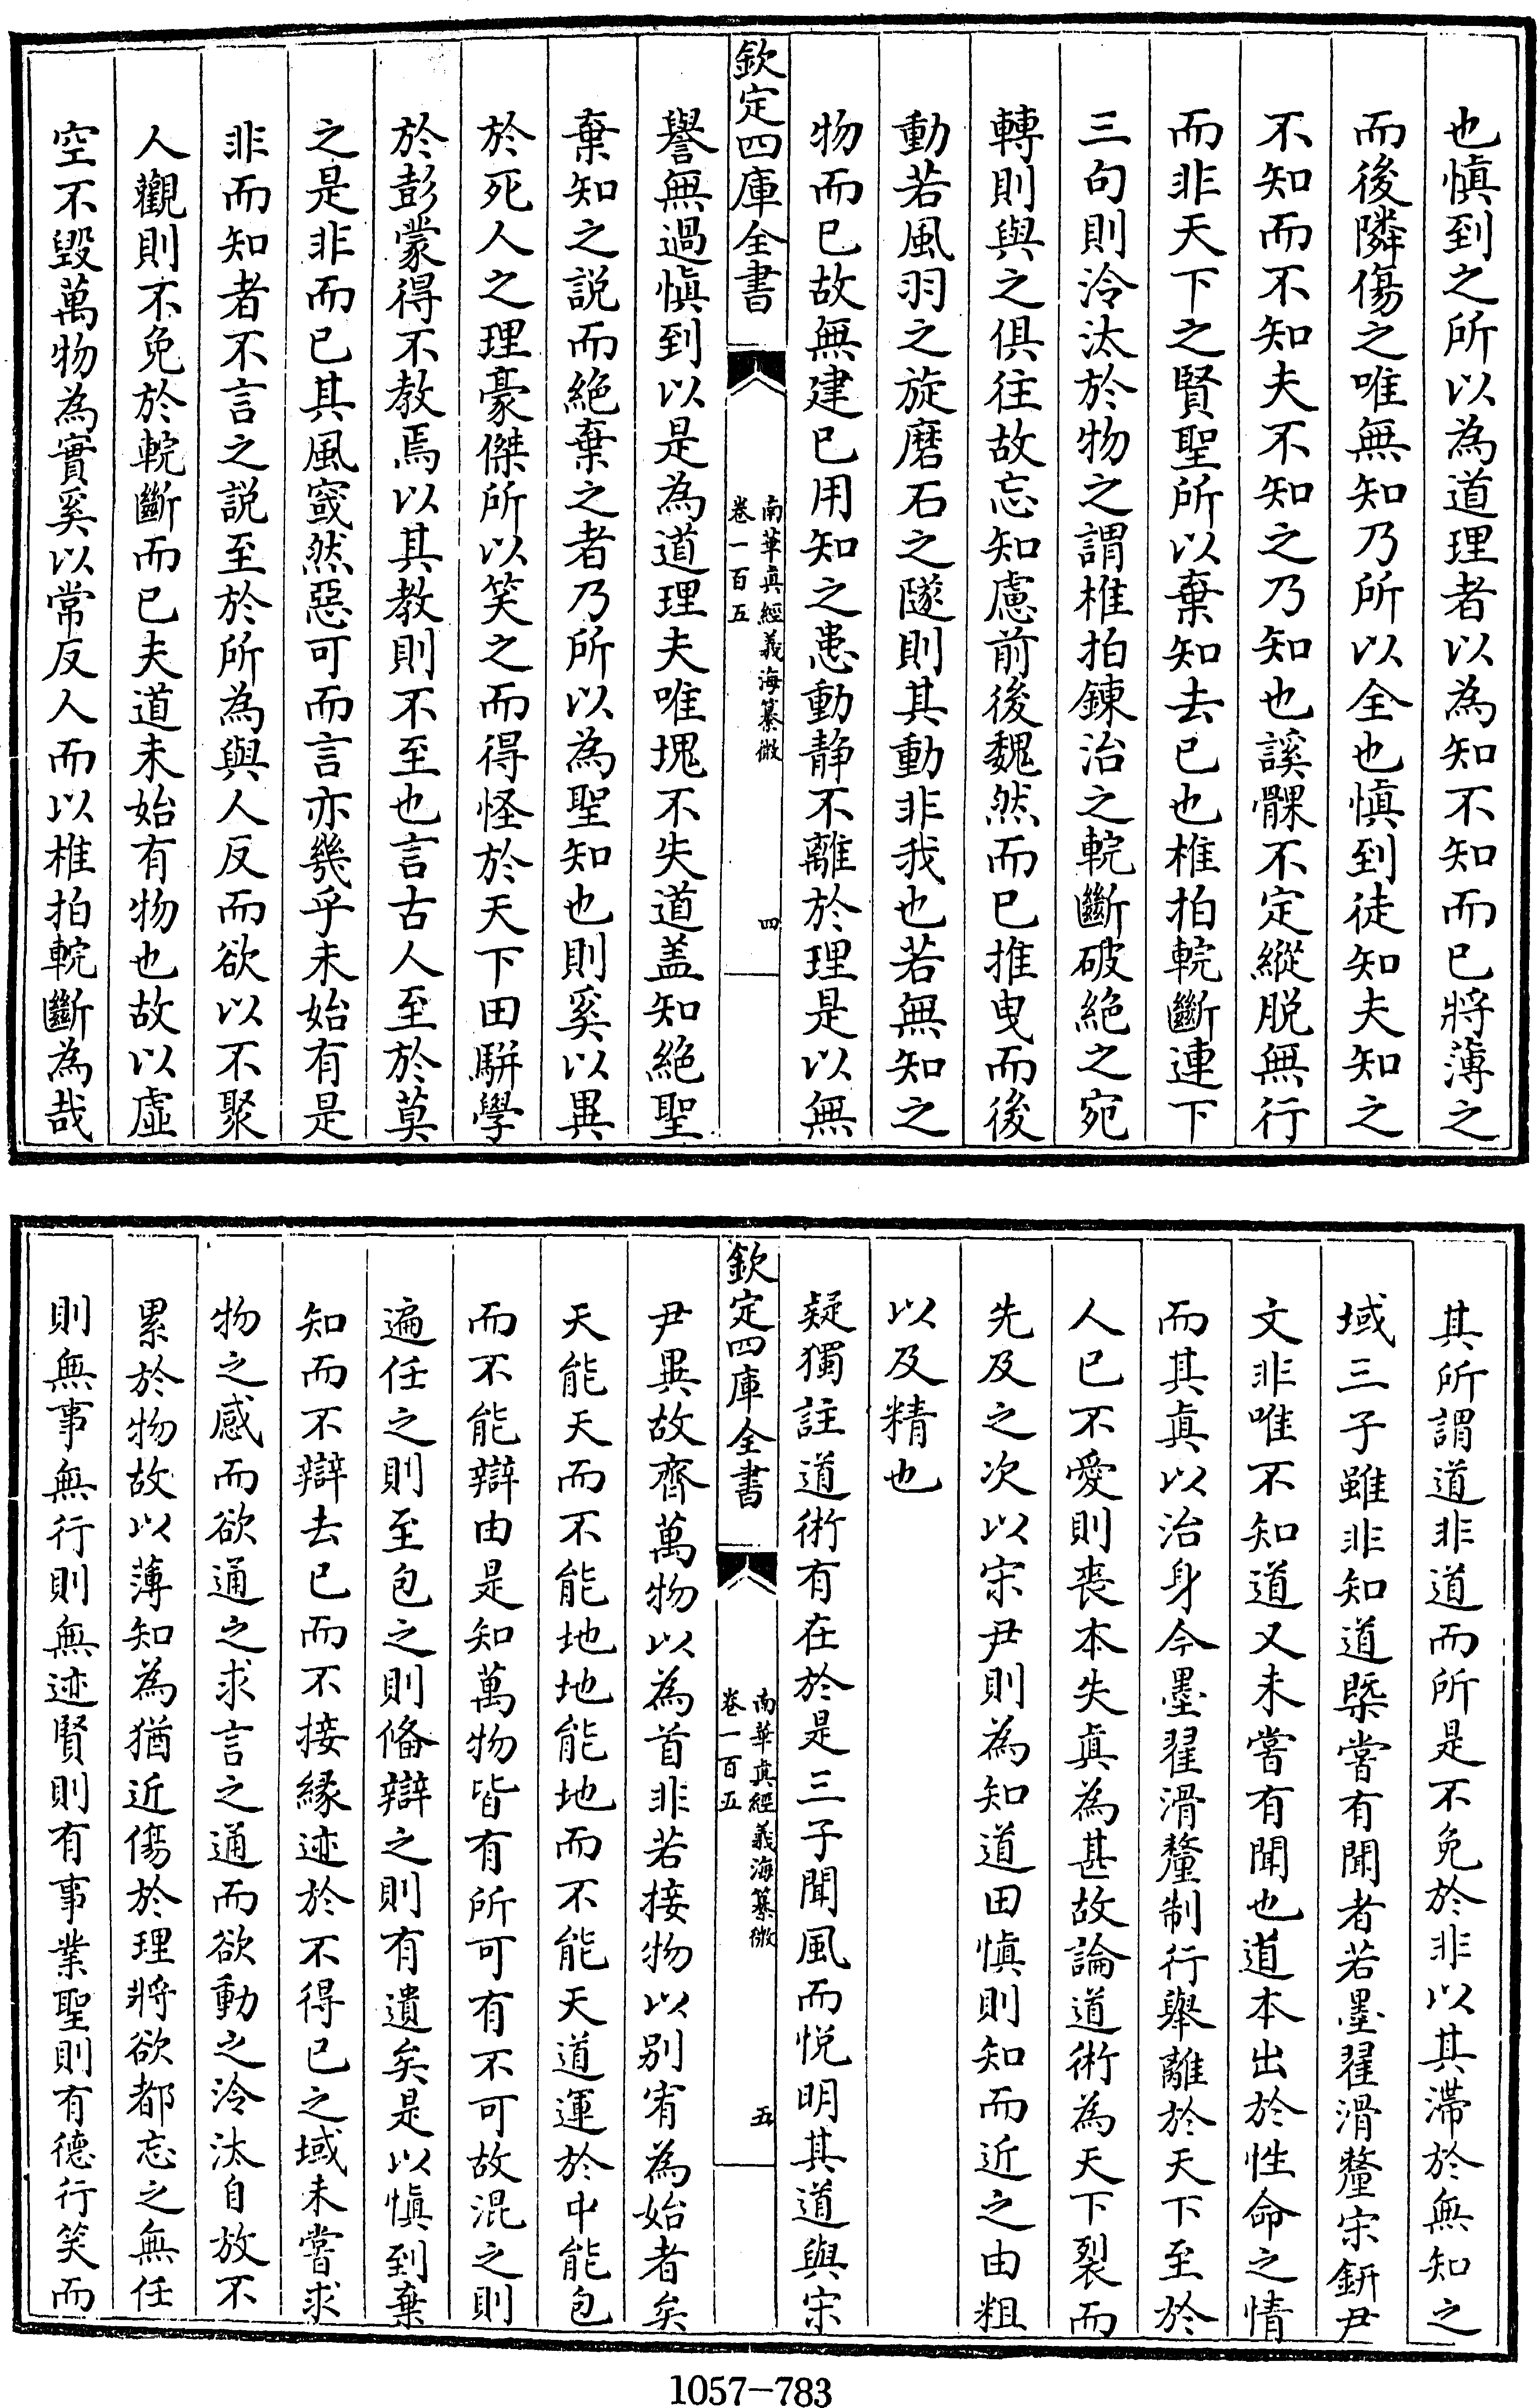 也慎到之所以為道理者以為知不知而已將薄之
而後隣傷之唯無知乃所以全也慎到徒知夫知之
不知而不知夫不知之乃知也謑髁不定縱脱無行
而非天下之賢聖所以棄知去已也椎拍輐斷連下
三句則泠汰於物之謂椎拍鍊治之輐斷破絶之宛
轉則與之俱往故忘知慮前後魏然而已推曳而後
動若風羽之旋磨石之隧則其動非我也若無知之
物而已故無建已用知之患動静不離於理是以無
欽定四庫全書
南華真經義海纂微
卷一百五
四
譽無過慎到以是為道理夫唯塊不失道盖知絶聖
棄知之説而絶棄之者乃所以為聖知也則奚以異
於死人之理豪傑所以笑之而得怪於天下田駢學
於彭蒙得不教焉以其教則不至也言古人至於莫
之是非而已其風窢然惡可而言亦幾乎未始有是
非而知者不言之説至於所為與人反而欲以不聚
人觀則不免於輐斷而已夫道未始有物也故以虚
空不毀萬物為實奚以常反人而以椎拍輐斷為哉
其所謂道非道而所是不免於非以其滯於無知之
域三子雖非知道槩嘗有聞者若墨翟滑釐宋鈃尹
文非唯不知道又未嘗有聞也道本出於性命之情
而其真以治身今墨翟滑釐制行舉離於天下至於
人已不愛則喪本失真為甚故論道術為天下裂而
先及之次以宋尹則為知道田慎則知而近之由粗
以及精也
疑獨註道術有在於是三子聞風而悦明其道與宋
欽定四庫全書
南華真經義海纂微
卷一百五
五
尹異故齊萬物以為首非若接物以别宥為始者矣
天能天而不能地地能地而不能天道運於中能包
而不能辯由是知萬物皆有所可有不可故混之則
遍任之則至包之則偹辯之則有遺矣是以慎到棄
知而不辯去已而不接緣迹於不得已之域未嘗求
物之感而欲通之求言之通而欲動之泠汰自放不
累於物故以薄知為猶近傷於理將欲都忘之無任
則無事無行則無迹賢則有事業聖則有德行笑而
1057-783